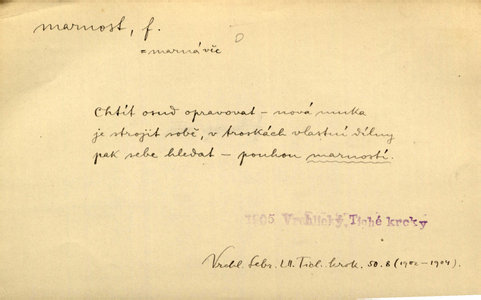 marnost, f.
= marná věc
Chtít osud opravovat – nová muka
je strojit sobě, v troskách vlastní dílny
pak sebe hledat – pouhou marností.
1905 Vrchlický, Tiché kroky
Vrchl. Sebr. LII. Tich. krok. 50.8 (1902–1904)